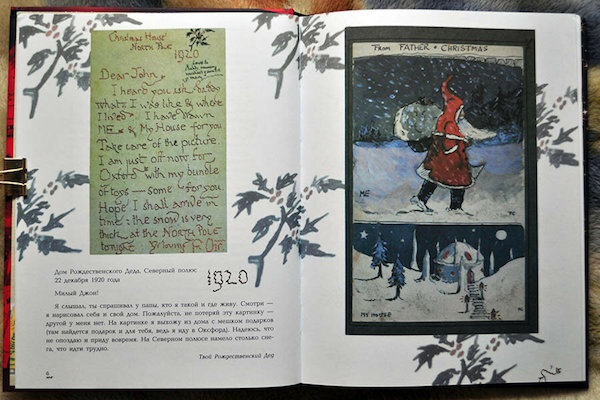 Christmas House
NORTH POLE
1920
Dear John,
I heard you ask daddy
what I was like & where
I lived. I have drawn
ME & My House for you.
Take care of the picture.
I am just off now for
Oxford with my bundle
of toys — some for you.
Hope I shall arrive in
time: the snow is very
thick at the NORTH POLE
tonight. Yr loving Fr. Chr.
1920
Дом Рождественского Деда, Северный полюс
22 декабря 1920 года
Милый Джон!
Я слышал, ты спрашивал у папы, кто я такой и где живу. Смотри —
я нарисовал себя и свой дом. Пожалуйста, не потеряй эту картинку —
другой у меня нет. На картинке я выхожу из дома с мешком подарков
(там найдется подарок и для тебя, ведь я иду в Оксфорд). Надеюсь, что
не опоздаю и приду вовремя. На Северном полюсе намело столько сне-
га, что идти трудно.
Твой Рождественский Дед
6
From FATHER CHRISTMAS
ME
FC
MY HOUSE
FC